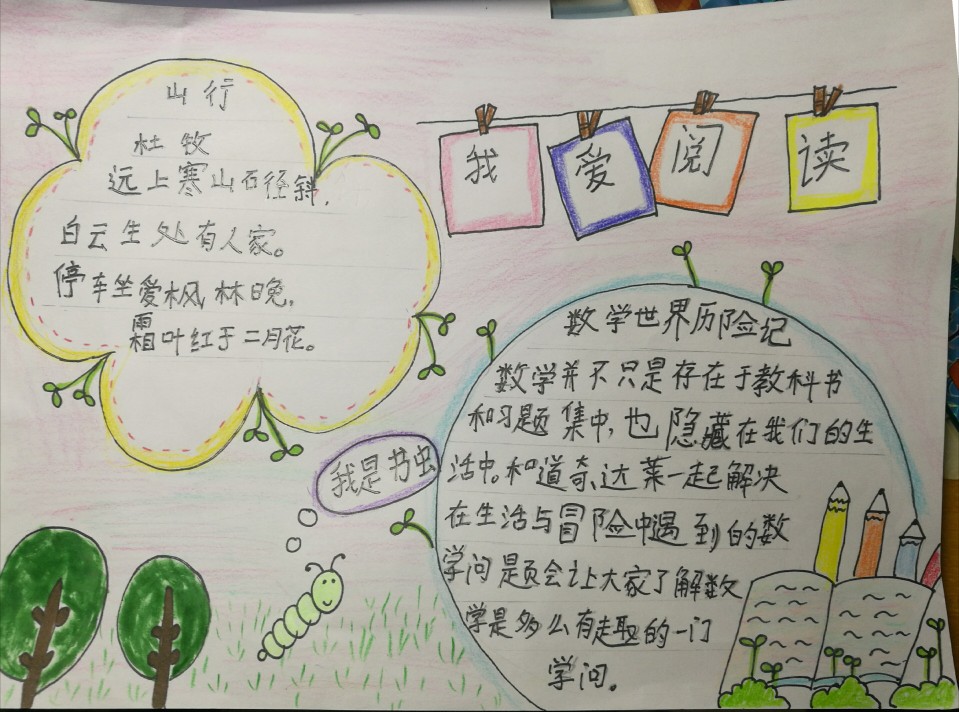 山行
杜牧
远上寒山石径斜，
白云生处有人家。
停车坐爱枫林晚，
霜叶红于二月花。
我爱阅读
数学世界历险记
数学并不只是存在于教科书
和习题集中，也隐藏在我们的生
活中。和道奇、达莱一起解决
在生活与冒险中遇到的数
学问题会让大家了解数
学是多么有趣的一门
学问。
我是书虫